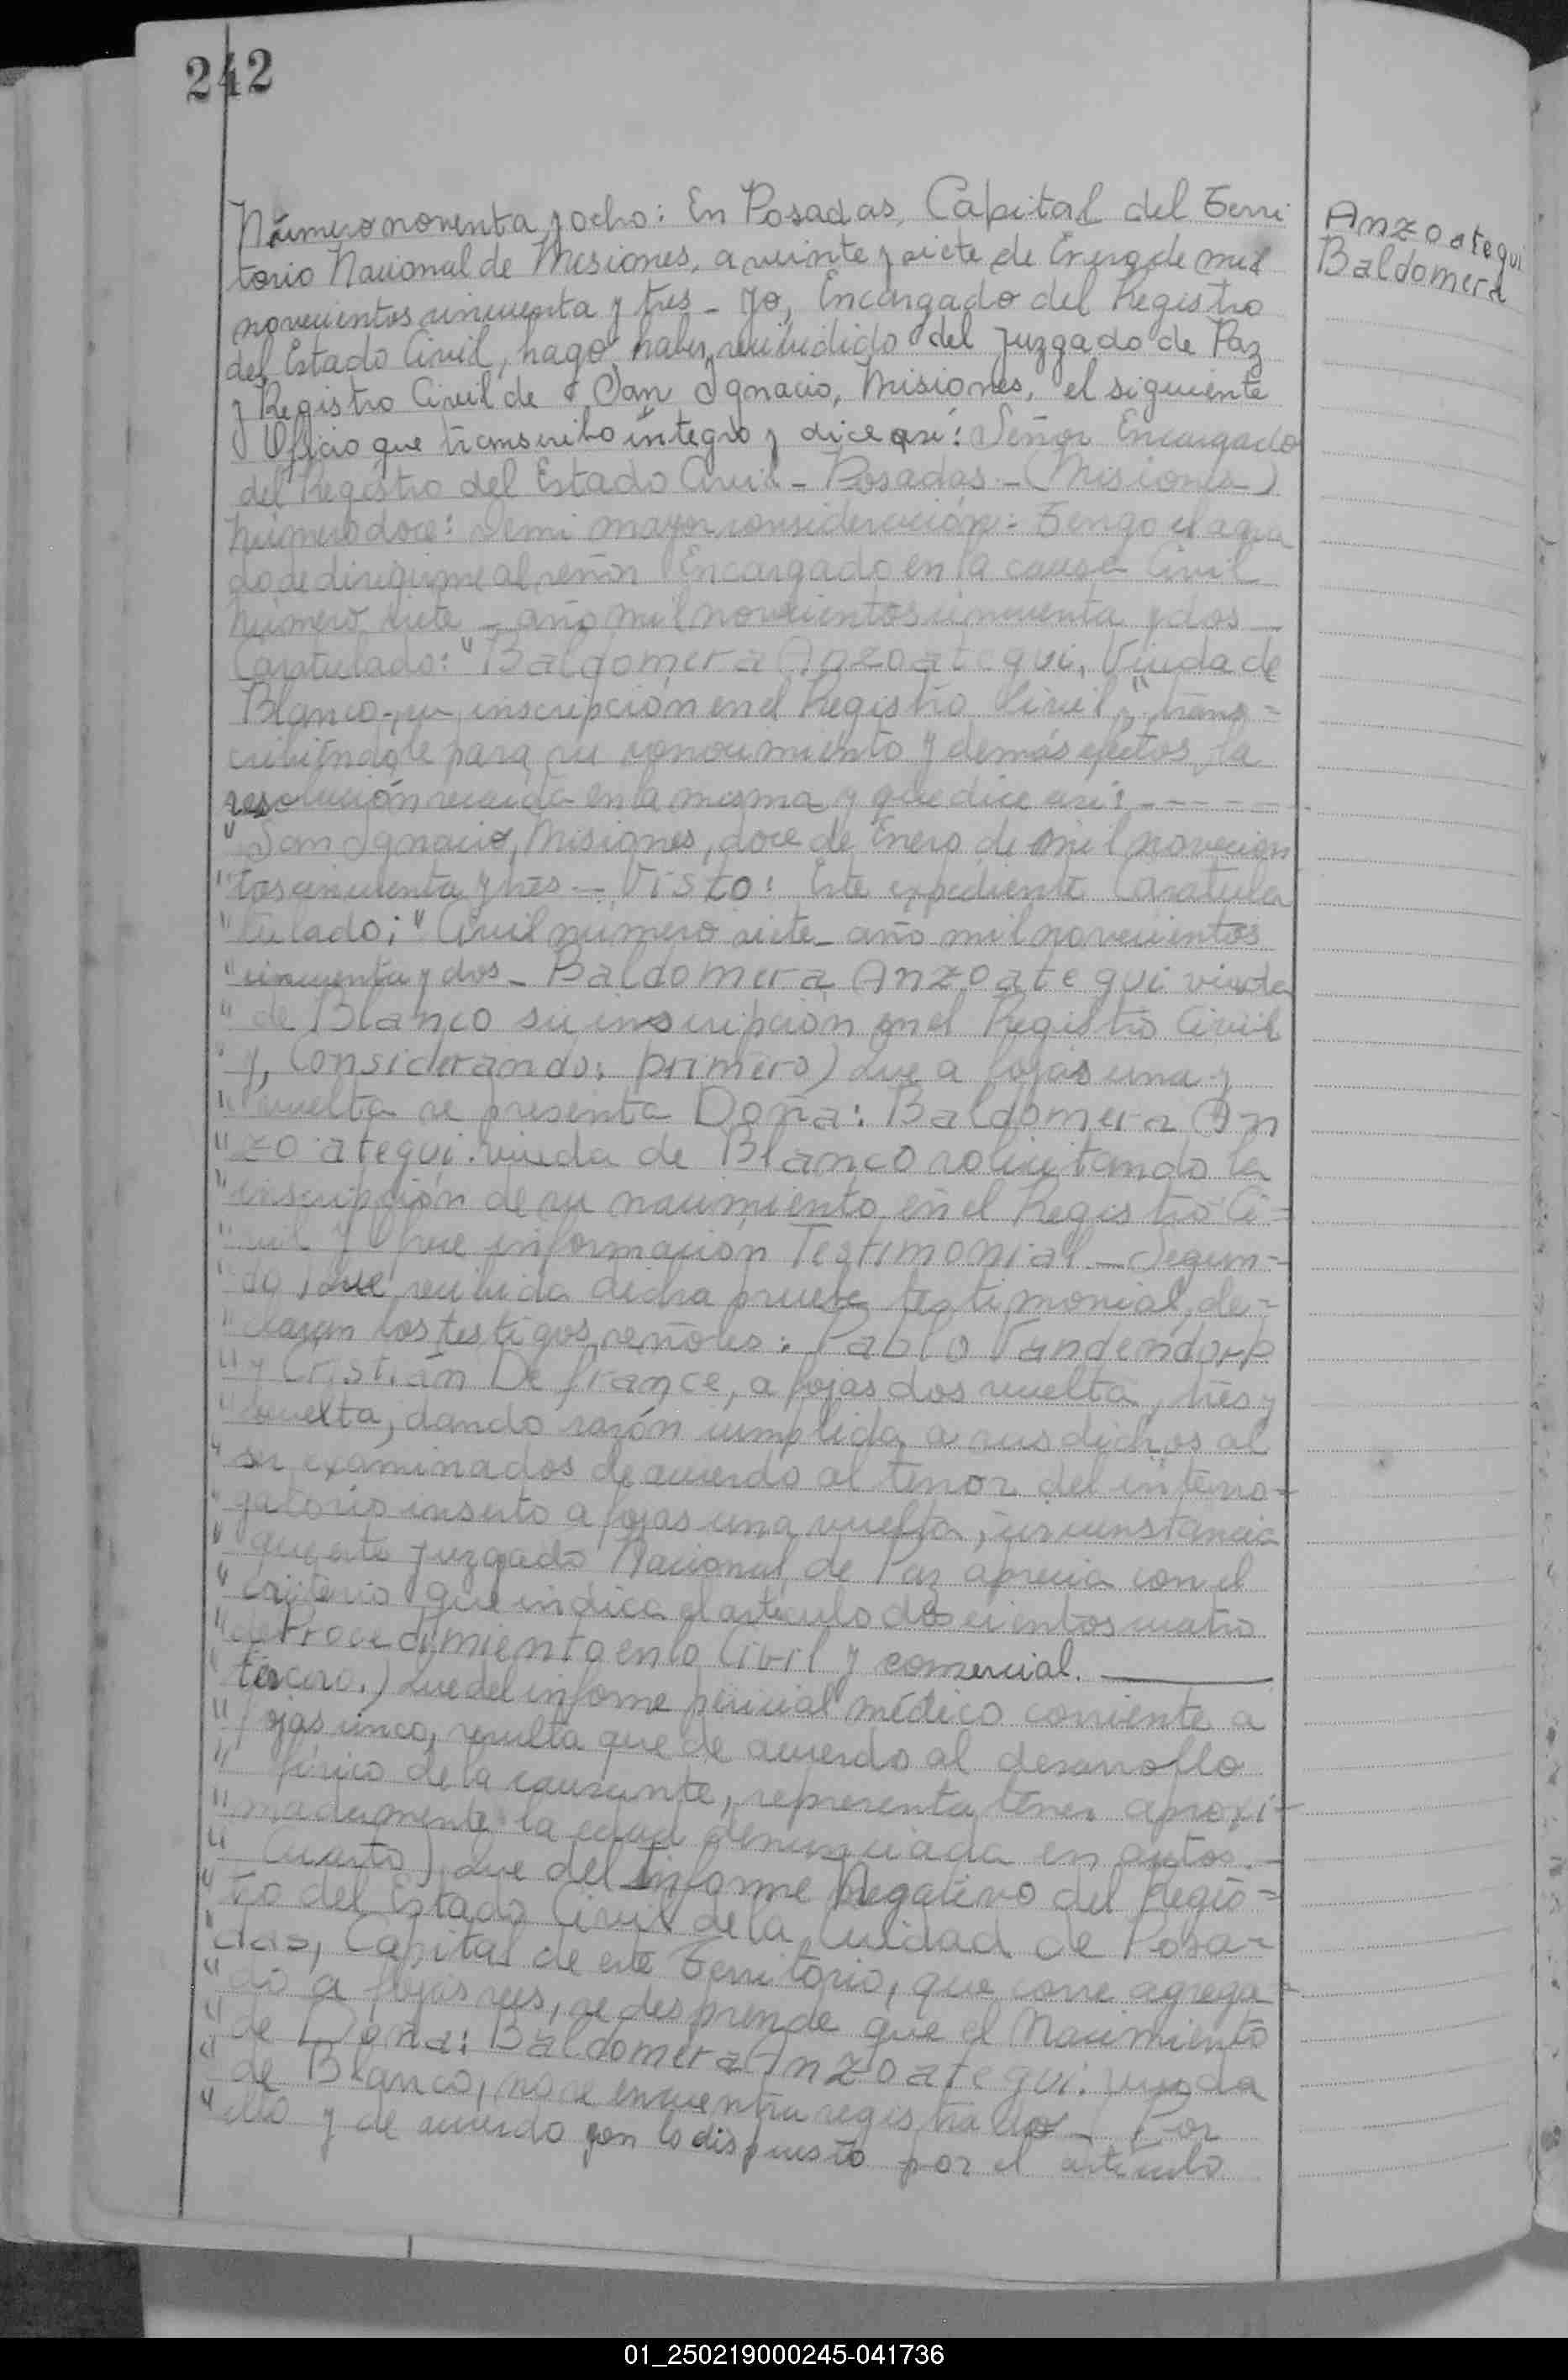 242
Número noventa y ocho: En Posadas, Capital del Terri
torio Nacional de Misiones, a veinte y siete de Enero de mil
novecientos cincuenta y tres – Yo, Encargado del Registro
del Estado Civil, hago haber recibidido del Juzgado de Paz
y Registro Civil de San Ignacio, Misiones, el siguiente
Oficio que transcribo íntegro y dice así: Señor Encargado
del Registro del Estado Civil – Posadas – (Misiones)
Número doce: De mi mayor consideración: Tengo el agra
do de dirigirme al señor Encargado en la causa Civil
Número siete – año mil novecientos cincuenta y dos –
Caratulado: "Baldomera Anzoategui, Viuda de
Blanco, su inscripción en el Registro Civil", trans=
cribiéndole para su conocimiento y demás efectos, la
resolución recaída en la misma y que dice así: - - - - -
"San Ignacio, Misiones, doce de Enero de mil novecien
"tos cincuenta y tres. – Visto: Este expediente Caratula
"tulado; "Civil número siete – año mil novecientos
"cincuenta y dos – Baldomera Anzoategui viuda
"de Blanco su inscripción en el Registro Civil
"y, Considerando: primero) Que a fojas una y
"vuelta se presenta Doña: Baldomera An
"zoategui. viuda de Blanco solicitando la
"inscripción de su nacimiento en el Registro Ci=
"vil y Ofrece información Testimonial – Segun=
"do) Que recibida dicha prueba testimonial, de=
"claran los testigos señores: Pablo Vandendorp
"y Cristián De france, a fojas dos vuelta, tres y
"vuelta, dando razón cumplida a sus dichos al
"ser examinados de acuerdo al tenor del interro=
"gatorio inserto a fojas una vuelta, circunstancia
"que este Juzgado Nacional de Paz aprecia con el
"criterio que indica el artículo doscientos cuatro
"de Procedimiento en lo Civil y comercial.
"tercero.) Que del informe pericial médico corriente a
"fojas cinco, resulta que de acuerdo al desarrollo
"físico de la causante, representa tener aproxi-
"madamente la edad denunciada en autos. –
"Cuarto) Que del Informe Negativo del Regis=
"tro del Estado Civil de la Ciudad de Posa=
"das, Capital de este Territorio, que corre agrega-
"do a fojas seis, se desprende que el Nacimiento
"de Doña: Baldomera Anzoategui. viuda
"de Blanco, no se encuentra registrado – Por
"ello y de acuerdo con lo dispuesto por el artículo
Anzoategui
Baldomera
01_250219000245-041736